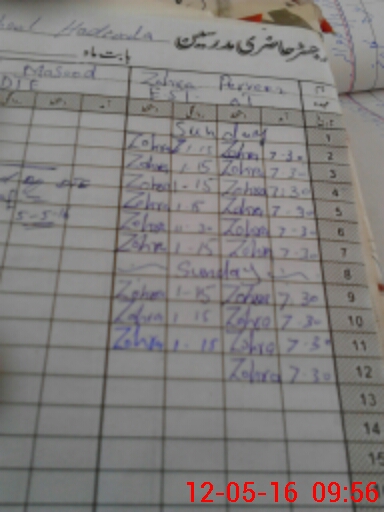 رجسٹر حاضری مدرسین
بابت ماہ
Masood Zohra Parveen
EST
Sunday 1
Zohra 1-15 Zohra 7-30 2
Zohra 1-15 Zohra 7-30 3
Zohra 1-15 Zohra 7-30 4
Zohra 1-15 Zohra 7-30 5
Zohra 11-30 Zohra 7-30 6
Zohra 1-15 Zohra 7-30 7
Sunday 8
Zohra 1-15 Zohra 7-30 9
Zohra 1-15 Zohra 7-30 10
Zohra 1-15 Zohra 7-30 11
Zohra 7-30 12
13
14
15
12-05-16 09:56